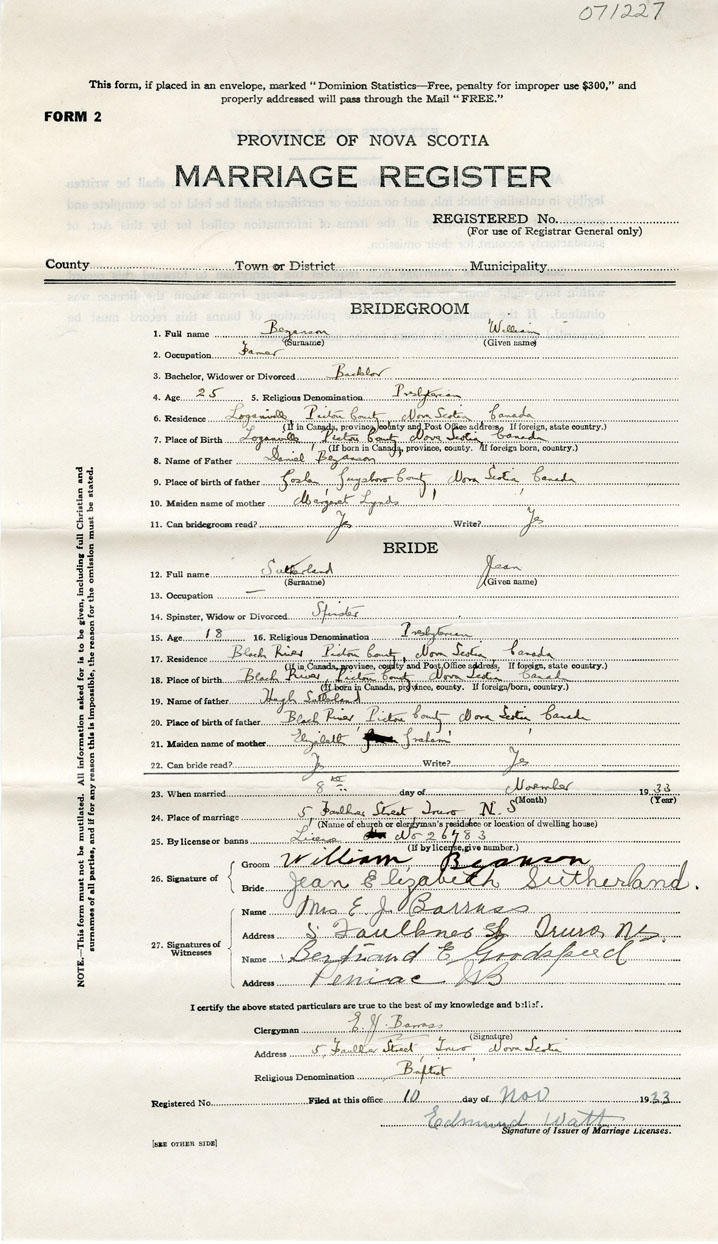 071227
This form, if placed in an envelope, marked “Dominion Statistics—Free, penalty for improper use $300,” and
properly addressed will pass through the Mail “FREE.”
FORM 2
PROVINCE OF NOVA SCOTIA
MARRIAGE REGISTER
REGISTERED No.
(For use of Registrar General only)
County Town or District Municipality
BRIDEGROOM
1. Full name Bezanson William
(Surname) (Given name)
2. Occupation Farmer
3. Bachelor, Widower or Divorced Bachlor
4. Age 25 5. Religious Denomination Presbyterian
6. Residence Loganville Pictou County Nova Scotia Canada
(If in Canada, province, county and Post Office address. If foreign, state country.)
7. Place of Birth Loganville Pictou County Nova Scotia Canada
(If born in Canada, province, county. If foreign born, country.)
8. Name of Father Daniel Bezanson
9. Place of birth of father Goshen Guysboro County Nova Scotia Canada
10. Maiden name of mother Margaret Lynds
11. Can bridegroom read? Yes Write? Yes
BRIDE
12. Full name Sutherland Jean
(Surname) (Given name)
13. Occupation —
14. Spinster, Widow or Divorced Spinster
15. Age 18 16. Religious Denomination Presbyterian
17. Residence Black River Pictou County, Nova Scotia Canada
(If in Canada, province, county and Post Office address. If foreign, state country.)
18. Place of birth Black River, Pictou County Nova Scotia Canada
(If born in Canada, province, county. If foreign born, country.)
19. Name of father Hugh Sutherland
20. Place of birth of father Black River Pictou County Nova Scotia Canada
21. Maiden name of mother Elizabeth Graham
22. Can bride read? Yes Write? Yes
23. When married 8 day of November 1933
(Month) (Year)
24. Place of marriage 5 Faulkner Street Truro N.S
(Name of church or clergyman's residence or location of dwelling house)
25. By license or banns License No 26783
(If by license, give number.)
26. Signature of
Groom William Bezanson
Bride Jean Elizabeth Sutherland.
27. Signatures of Witnesses
Name Mrs E. J. Barrass
Address 5 Faulkner St Truro N.S.
Name Bertrand E Goodspeed
Address Peniac NB
I certify the above stated particulars are true to the best of my knowledge and belief.
Clergyman E. J. Barrass
(Signature)
Address 5, Faulkner Street, Truro, Nova Scotia
Religious Denomination Baptist
Registered No. Filed at this office 10 day of Nov 1933
Edmund Watt
Signature of Issuer of Marriage Licenses.
[SEE OTHER SIDE]
NOTE.—This form must not be mutilated. All information asked for is to be given, including full Christian and
surnames of all parties, and if for any reason this is impossible, the reason for the omission must be stated.